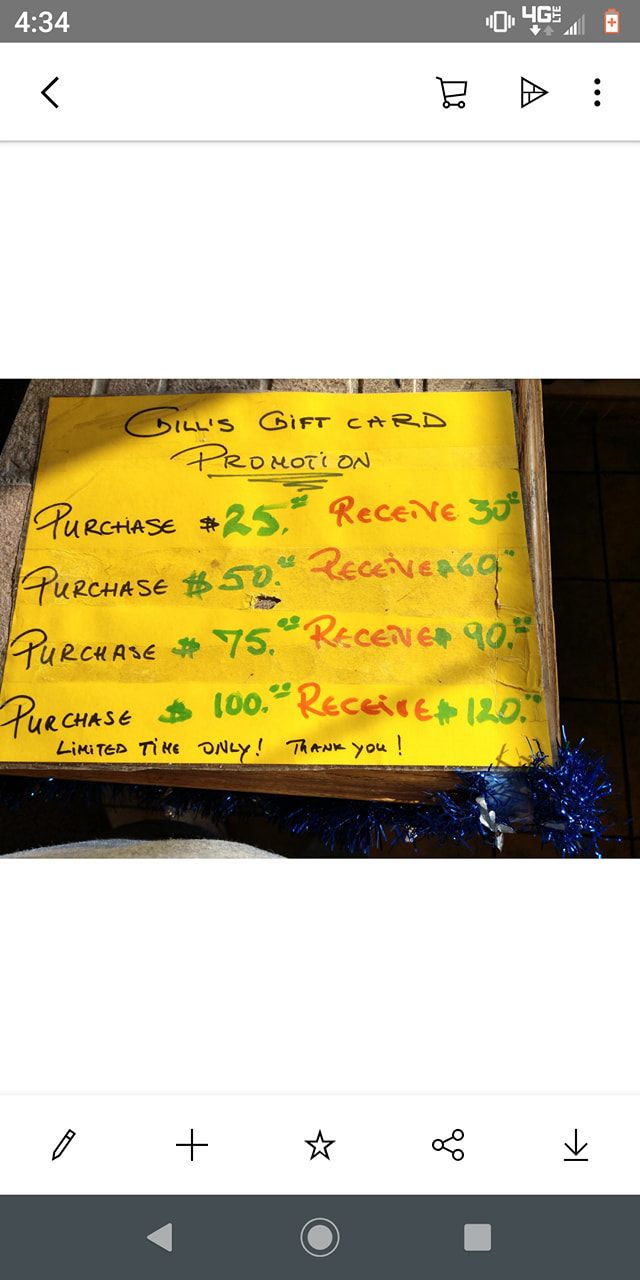 4:34
4G LTE
GILL'S GIFT CARD
PROMOTION
PURCHASE $25.00 RECEIVE 30.00
PURCHASE $50.00 RECEIVE $60.00
PURCHASE $75.00 RECEIVE $90.00
PURCHASE $100.00 RECEIVE $120.00
LIMITED TIME ONLY! THANK YOU!